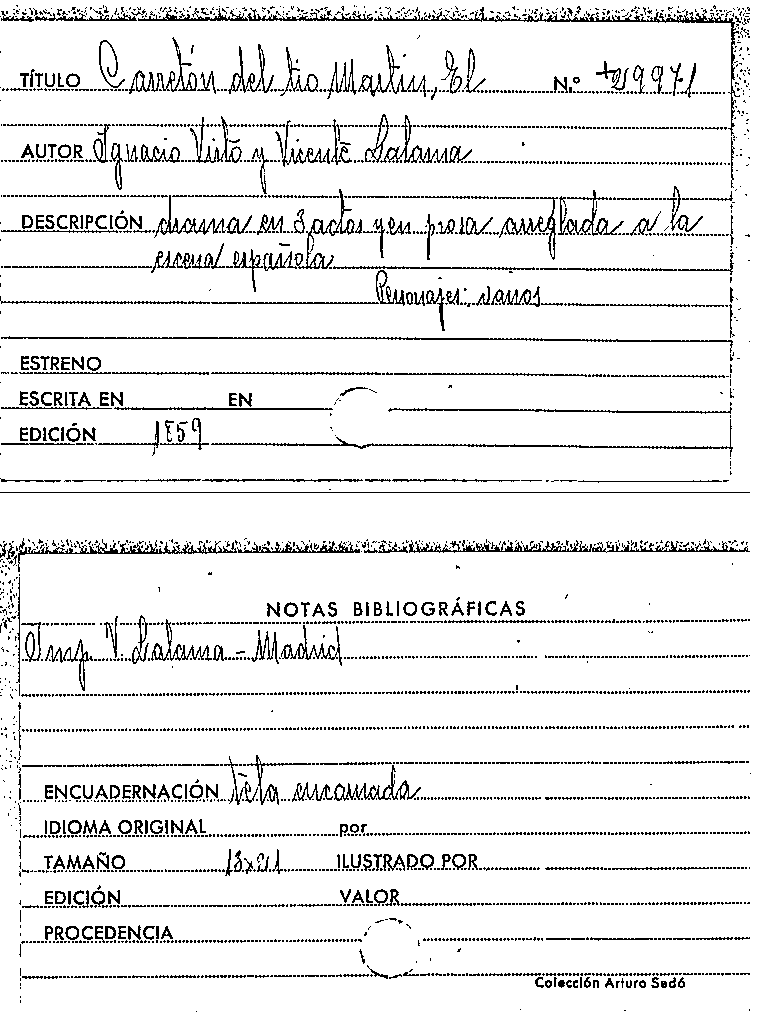 TÍTULO Carretón del tio Martin, El N.º +29971
AUTOR Ignacio Virto y Vicente Lalama
DESCRIPCIÓN drama en 3 actos y en prosa arreglada a la
escena española
Personajes: varios
ESTRENO
ESCRITA EN EN
EDICIÓN 1859
NOTAS BIBLIOGRÁFICAS
Imp. V. Lalama - Madrid
ENCUADERNACIÓN tela encarnada
IDIOMA ORIGINAL por
TAMAÑO 13x21 ILUSTRADO POR
EDICIÓN VALOR
PROCEDENCIA
Colección Arturo Sedó